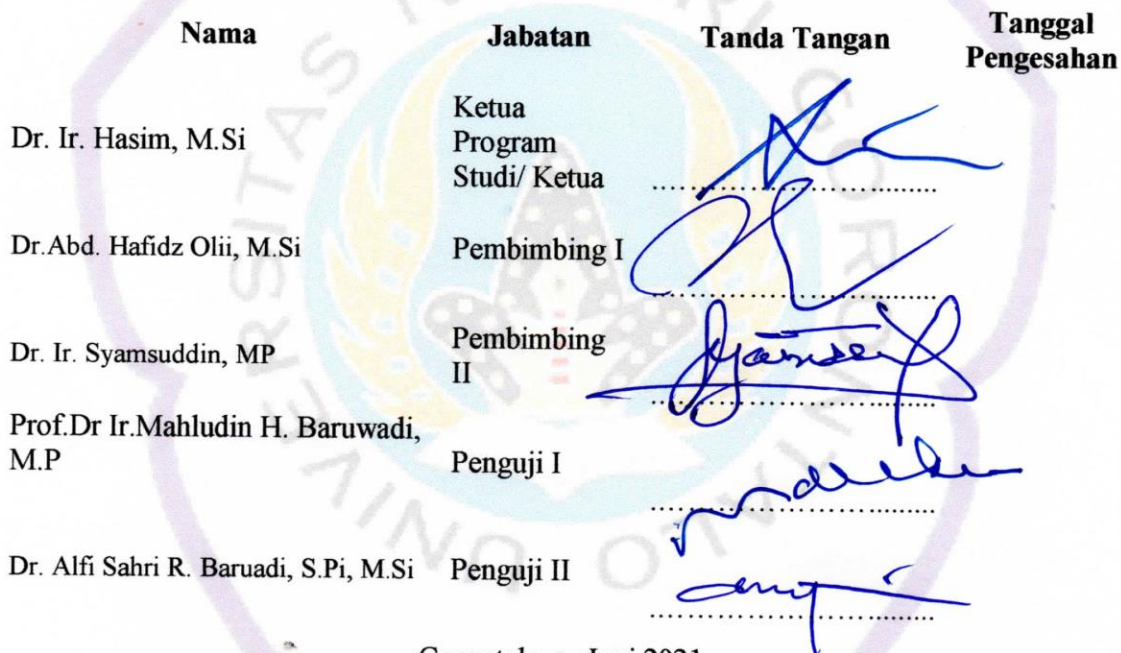 Nama Jabatan Tanda Tangan Tanggal
Pengesahan
Dr. Ir. Hasim, M.Si Ketua
Program
Studi/ Ketua ........................
Dr.Abd. Hafidz Olii, M.Si Pembimbing I
........................
Dr. Ir. Syamsuddin, MP Pembimbing
II
........................
Prof.Dr Ir.Mahludin H. Baruwadi,
M.P Penguji I
........................
Dr. Alfi Sahri R. Baruadi, S.Pi, M.Si Penguji II
........................
2021